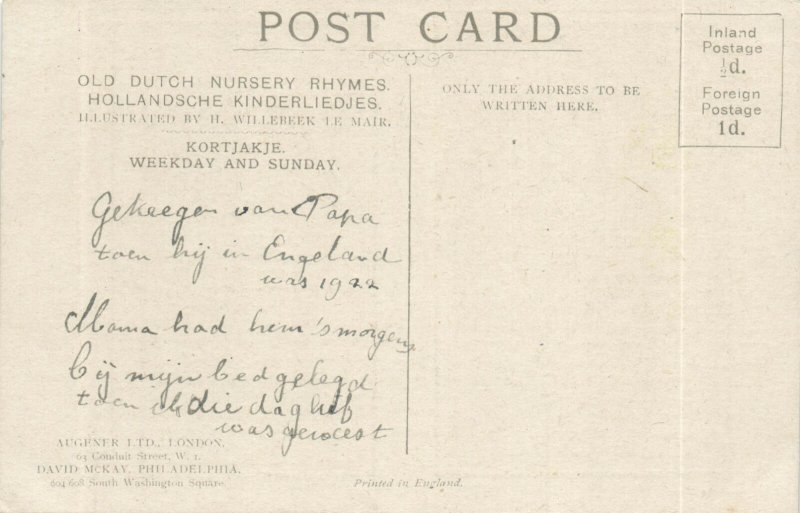 POST CARD
OLD DUTCH NURSERY RHYMES.
HOLLANDSCHE KINDERLIEDJES.
ILLUSTRATED BY H. WILLEBEEK LE MAIR.
KORTJAKJE.
WEEKDAY AND SUNDAY.
Gekeegen van Papa
toen hij in Engeland
was 1922
Mama had hem 's morgens
bij mijn bed gelegd
toen ik die dag lief
was geweest
AUGENER LTD., LONDON.
63 Conduit Street, W. 1.
DAVID McKAY, PHILADELPHIA.
604-608 South Washington Square.
Printed in England.
ONLY THE ADDRESS TO BE
WRITTEN HERE.
Inland
Postage
½d.
Foreign
Postage
1d.